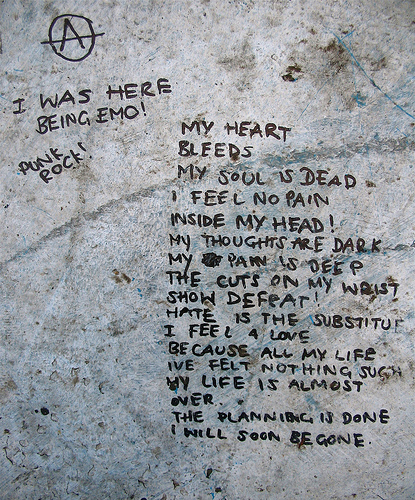 A
I WAS HERE
BEING EMO!
PUNK
ROCK!
MY HEART
BLEEDS
MY SOUL IS DEAD
I FEEL NO PAIN
INSIDE MY HEAD!
MY THOUGHTS ARE DARK
MY PAIN IS DEEP
THE CUTS ON MY WRIST
SHOW DEFEAT!
HATE IS THE SUBSTITUT
I FEEL 4 LOVE
BECAUSE ALL MY LIFE
IVE FELT NOTHING SUCH
MY LIFE IS ALMOST
OVER
THE PLANNING IS DONE
I WILL SOON BE GONE.